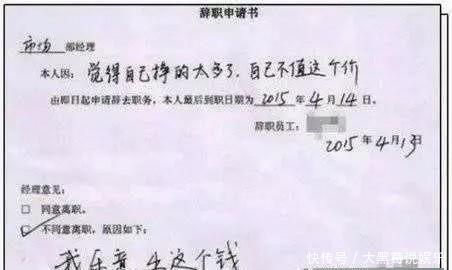 辞职申请书
市场 部经理
本人因：觉得自己挣的太多了，自己不值这个价
由即日起申请辞去职务，本人最后到职日期为 2015 年 4 月 14 日。
辞职员工：
2015 年 4 月 13 日
经理意见：
□ 同意离职。
☑ 不同意离职，原因如下：
我乐意 出这个钱
快传号 / 大黑哥说娱乐